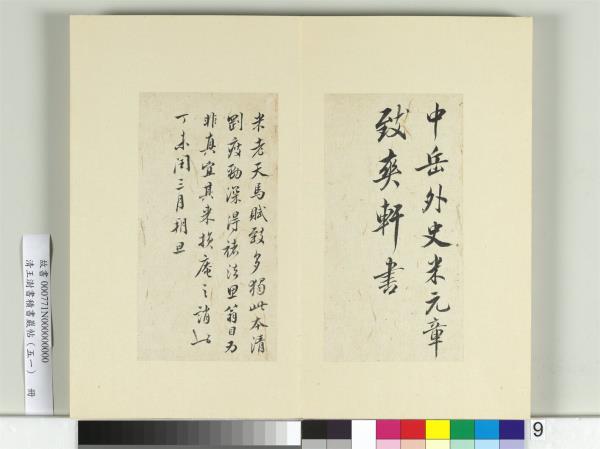 中岳外史米元章
致爽軒書
米老天馬賦數多獨此本清
劉瘦勁深得褚法思翁目为
非真宜其来損庵之誚也
丁未閏三月朔旦
故書 000771N000000000
清王澍書積書巖帖(五一) 冊
9